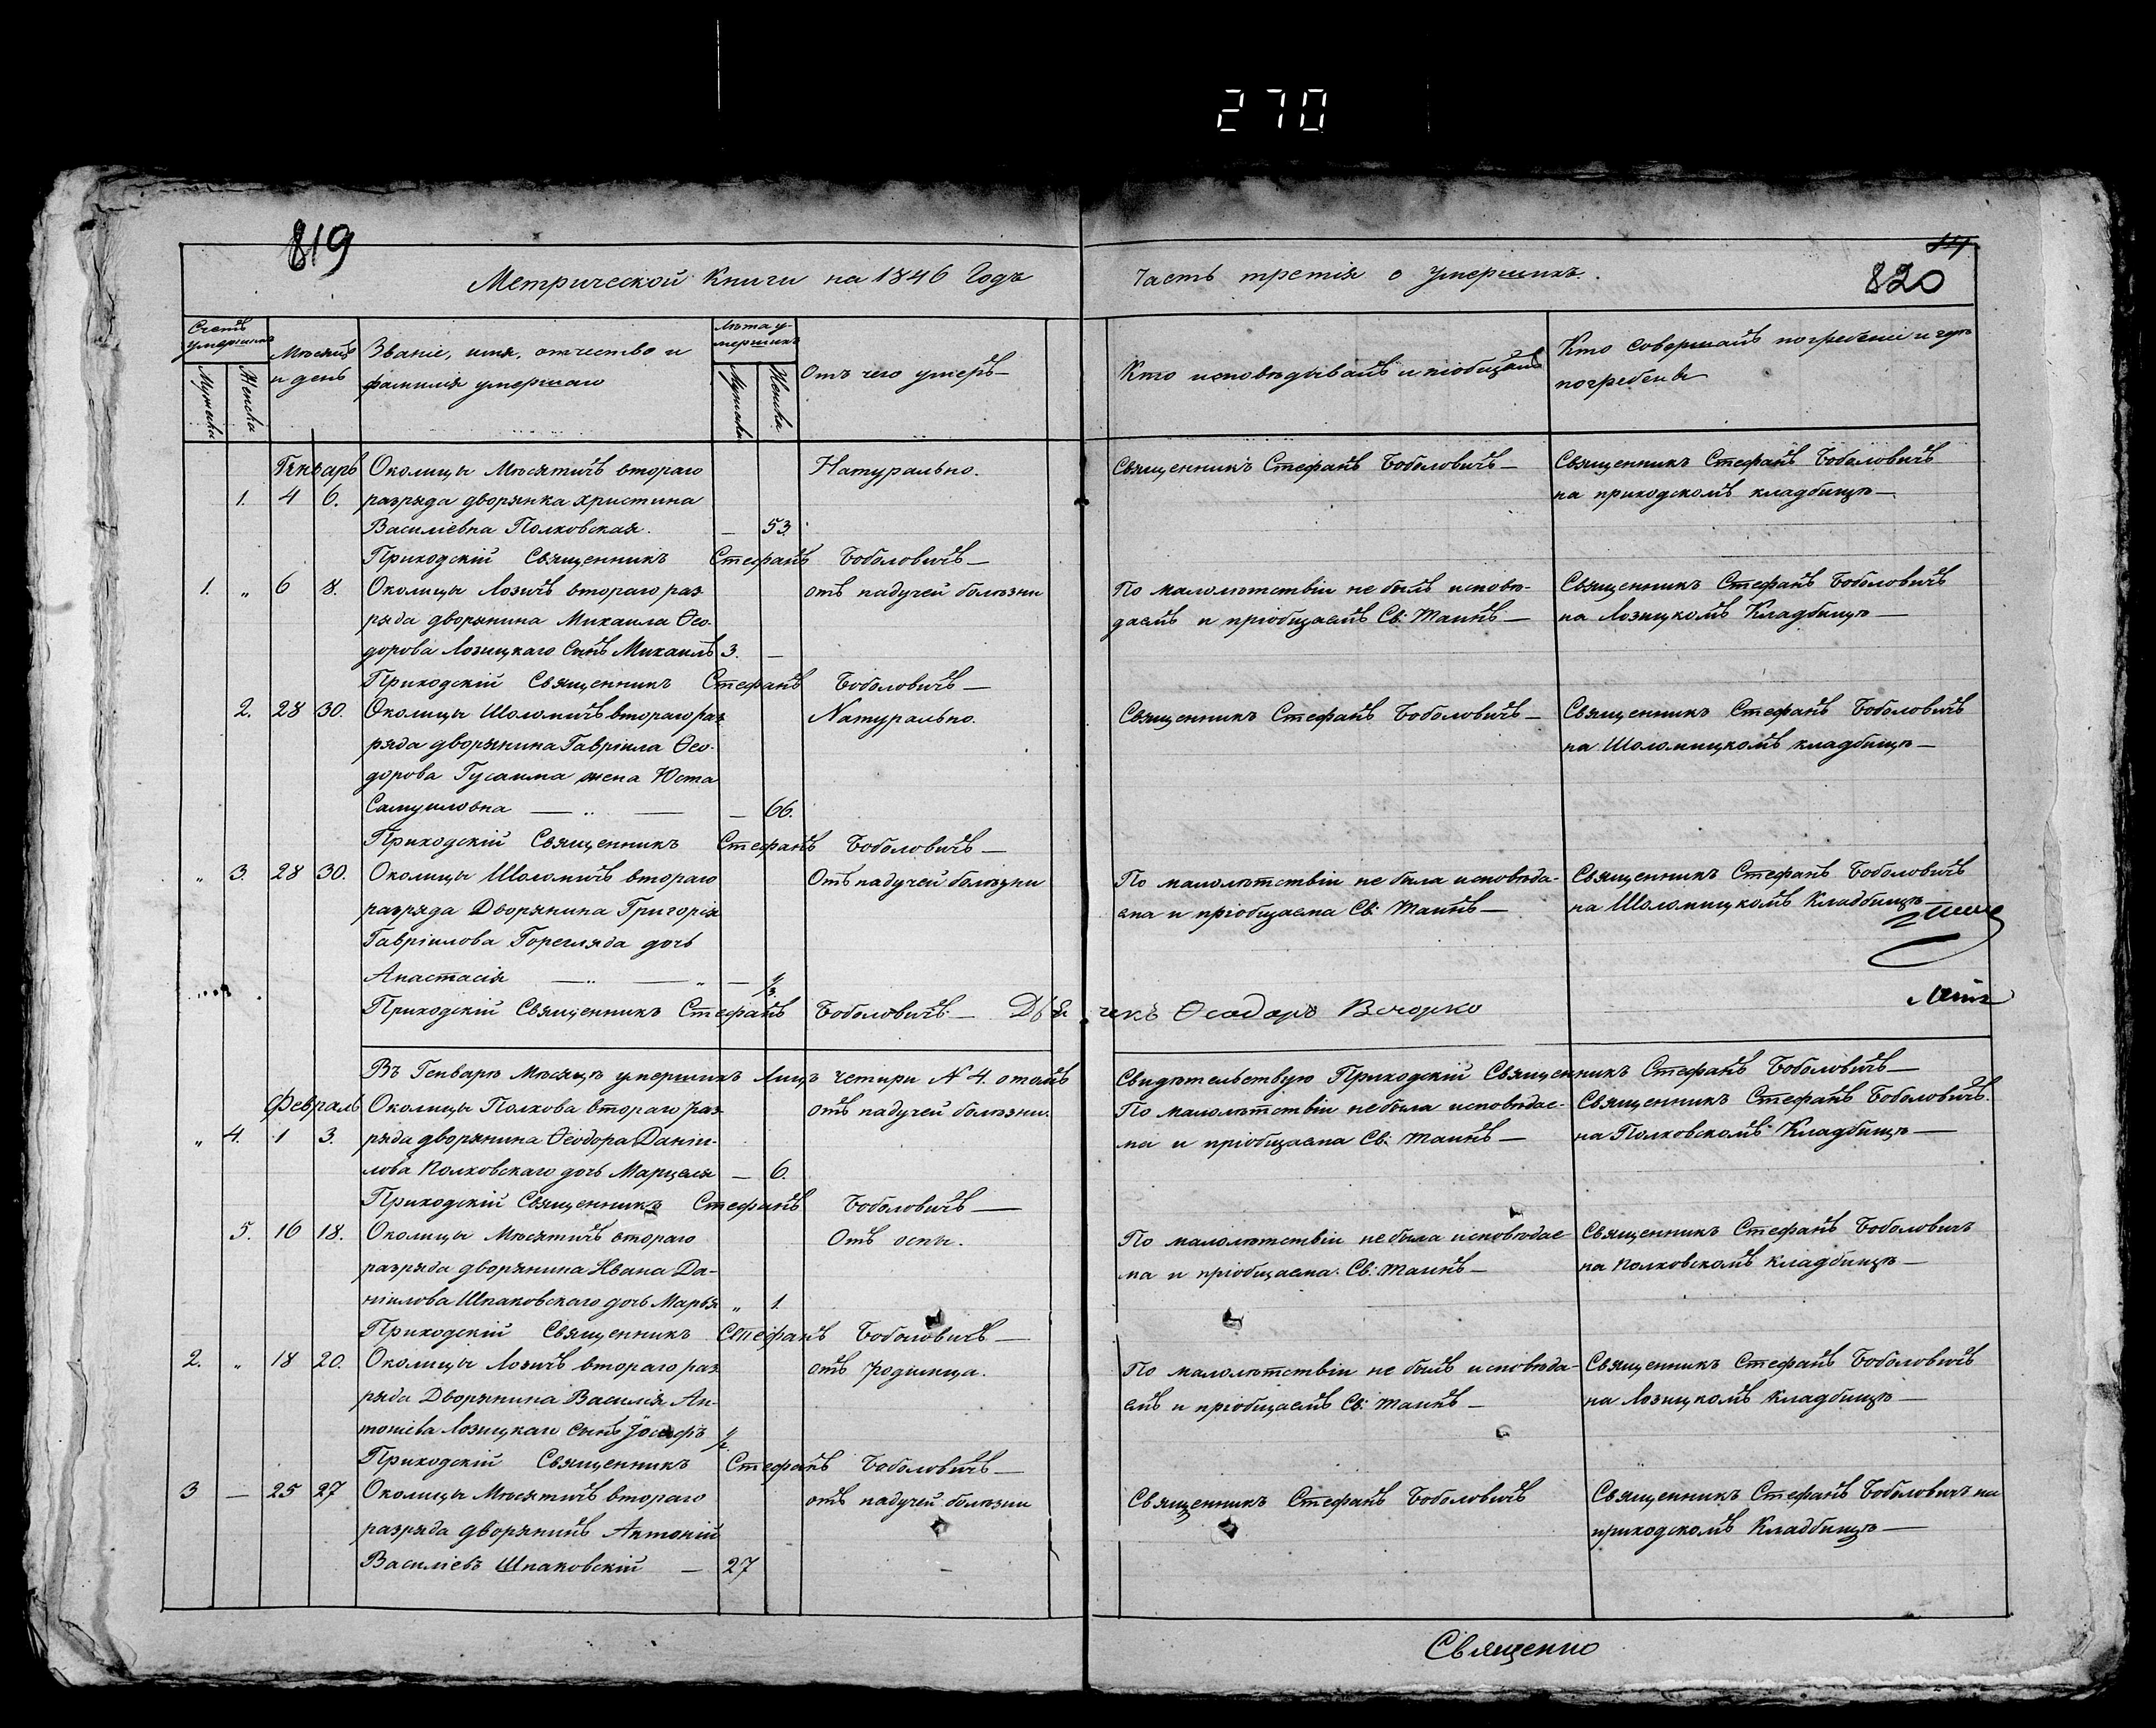 270
819
14
820
Метрической Книги на 1846 Годъ
Часть третія о умершихъ.
Счетъ умершихъ
Мужеска
Женска
Мѣсяцъ и день
Званіе, имя, отчество и
фамилія умершаго
Лѣта у-
мершихъ
Мужеска
Женска
Отъ чего умеръ—
Кто исповѣдывалъ и пріобщалъ
Кто совершалъ погребеніе и гдѣ
погребены
Генварь Околицы Мѣсятичъ втораго Натурально. Священникъ Стефанъ Боболовичъ— Священникъ Стефанъ Боболовичъ
1. 4 6. разряда дворянка Христина на приходскомъ кладбищѣ—
Василіевна Полховская. — 53.
Приходскій Священникъ Стефанъ Боболовичъ—
1. „ 6 8. Околицы Лозичъ втораго раз отъ падучей болѣзни По малолѣтствіи не былъ исповѣ- Священникъ Стефанъ Боболовичъ
ряда дворянина Михаила Ѳео- даемъ и пріобщаемъ Св: Таинъ— на Лозицкомъ Кладбищѣ—
дорова Лозицкаго Сынъ Михаилъ 3. —
Приходскій Священникъ Стефанъ Боболовичъ—
2. 28 30. Околицы Шоломичъ втораго раз Натурально. Священникъ Стефанъ Боболовичъ— Священникъ Стефанъ Боболовичъ
ряда дворянина Гавріила Ѳео- на Шоломицкомъ кладбищѣ—
дорова Гусаима жена Юста
Самуиловна — „ — — 66.
Приходскій Священникъ Стефанъ Боболовичъ—
„ 3. 28 30. Околицы Шоломичъ втораго Отъ падучей болѣзни По малолѣтствіи не была исповѣда- Священникъ Стефанъ Боболовичъ
разряда Дворянина Григорія ема и пріобщаема Св: Таинъ— на Шоломицкомъ Кладбищѣ—
Гавріилова Горегляда дочь
Анастасія — „ — „ — 1/3.
Приходскій Священникъ Стефанъ Боболовичъ— Дья чекъ Ѳеодоръ Вечорко
Въ Генварѣ Мѣсяцѣ умершихъ Лицъ четыри N 4. отомъ Свидѣтельствую Приходскій Священникъ Стефанъ Боболовичъ—
Февраль Околицы Полхова втораго раз отъ падучей болѣзни. По малолѣтствіи не была исповѣдае- Священникъ Стефанъ Боболовичъ.
„ 4. 1 3. ряда дворянина Ѳеодора Даніи- ма и пріобщаема Св: Таинъ— на Полховскомъ Кладбищѣ—
лова Полховскаго дочь Марцеля — 6.
Приходскій Священникъ Стефанъ Боболовичъ—
5. 16 18. Околицы Мѣсятичъ втораго Отъ оспы. По малолѣтствіи не была исповѣдае Священникъ Стефанъ Боболовичъ
разряда дворянина Ивана Да- ма и пріобщаема. Св: Таинъ— на Полховскомъ кладбищѣ—
ніилова Шпаковскаго дочь Марья „ 1.
Приходскій Священникъ Стефанъ Боболовичъ—
2. „ 18 20. Околицы Лозичъ втораго раз отъ родимца. По малолѣтствіи не былъ исповѣда- Священникъ Стефанъ Боболовичъ
ряда Дворянина Василія Ан- емъ и пріобщаемъ Св: Таинъ— на Лозицкомъ кладбищѣ—
тоніева Лозицкаго сынъ Іосифъ 1/2.
Приходскій Священникъ Стефанъ Боболовичъ—
3 — 25 27 Околицы Мѣсятичъ втораго отъ падучей болѣзни Священникъ Стефанъ Боболовичъ Священникъ Стефанъ Боболовичъ на
разряда дворянинъ Антоній приходскомъ Кладбищѣ—
Василіевъ Шпаковскій — 27
Священно